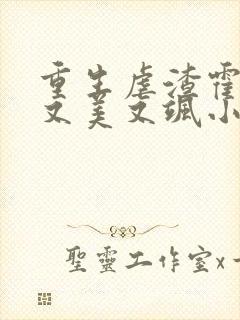 重生虐渣霍
又美又飒小
聖靈工作室x